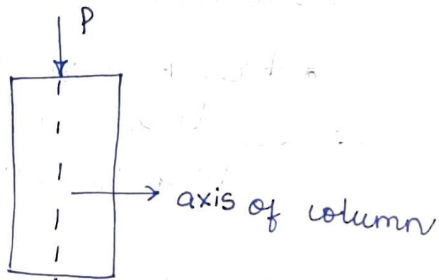 P
axis of column